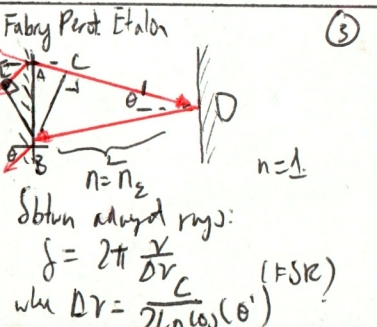 Fabry Perot Etalon
③
E A C
θ' D
θ B L
n = n₂
n = 1
δ btwn adjacent rays:
δ = 2π ν/Δν
(FSR)
where Δν = c/2Ln cos(θ')